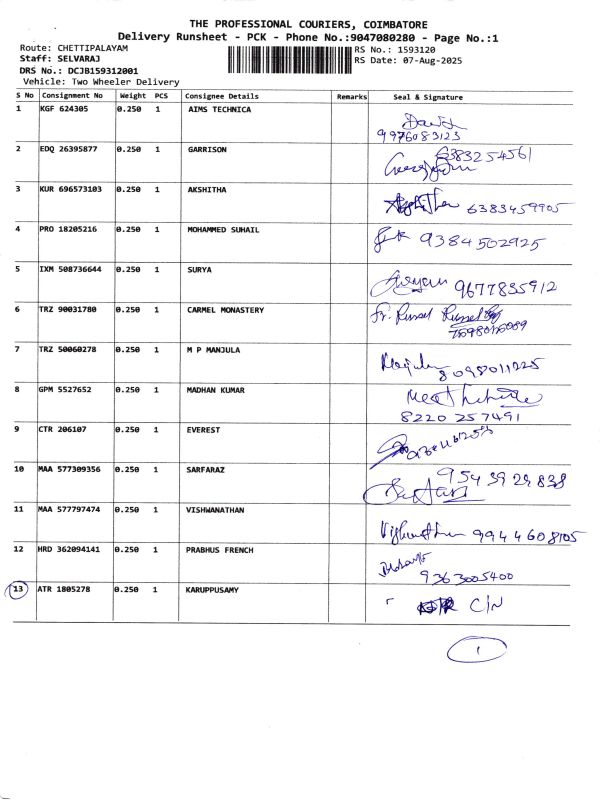 THE PROFESSIONAL COURIERS, COIMBATORE
Delivery Runsheet - PCK - Phone No.:9047080280 - Page No.:1
Route: CHETTIPALAYAM
RS No.: 1593120
Staff: SELVARAJ
RS Date: 07-Aug-2025
DRS No.: DCJB159312001
Vehicle: Two Wheeler Delivery
S No Consignment No Weight PCS Consignee Details Remarks Seal & Signature
1 KGF 624305 0.250 1 AIMS TECHNICA
9976083123
2 EDQ 26395877 0.250 1 GARRISON 6383254561
3 KUR 696573103 0.250 1 AKSHITHA 6383459905
4 PRO 18205216 0.250 1 MOHAMMED SUHAIL 9384502925
5 IXM 508736644 0.250 1 SURYA 9677835912
6 TRZ 90031780 0.250 1 CARMEL MONASTERY Fr. Russel
7 TRZ 50060278 0.250 1 M P MANJULA Manjula
8098011225
8 GPM 5527652 0.250 1 MADHAN KUMAR
8220 257491
9 CTR 206107 0.250 1 EVEREST
10 MAA 577309356 0.250 1 SARFARAZ 9543929838
11 MAA 577797474 0.250 1 VISHWANATHAN 9944608105
12 HRD 362094141 0.250 1 PRABHUS FRENCH
9363005400
13 ATR 1805278 0.250 1 KARUPPUSAMY C/N
1